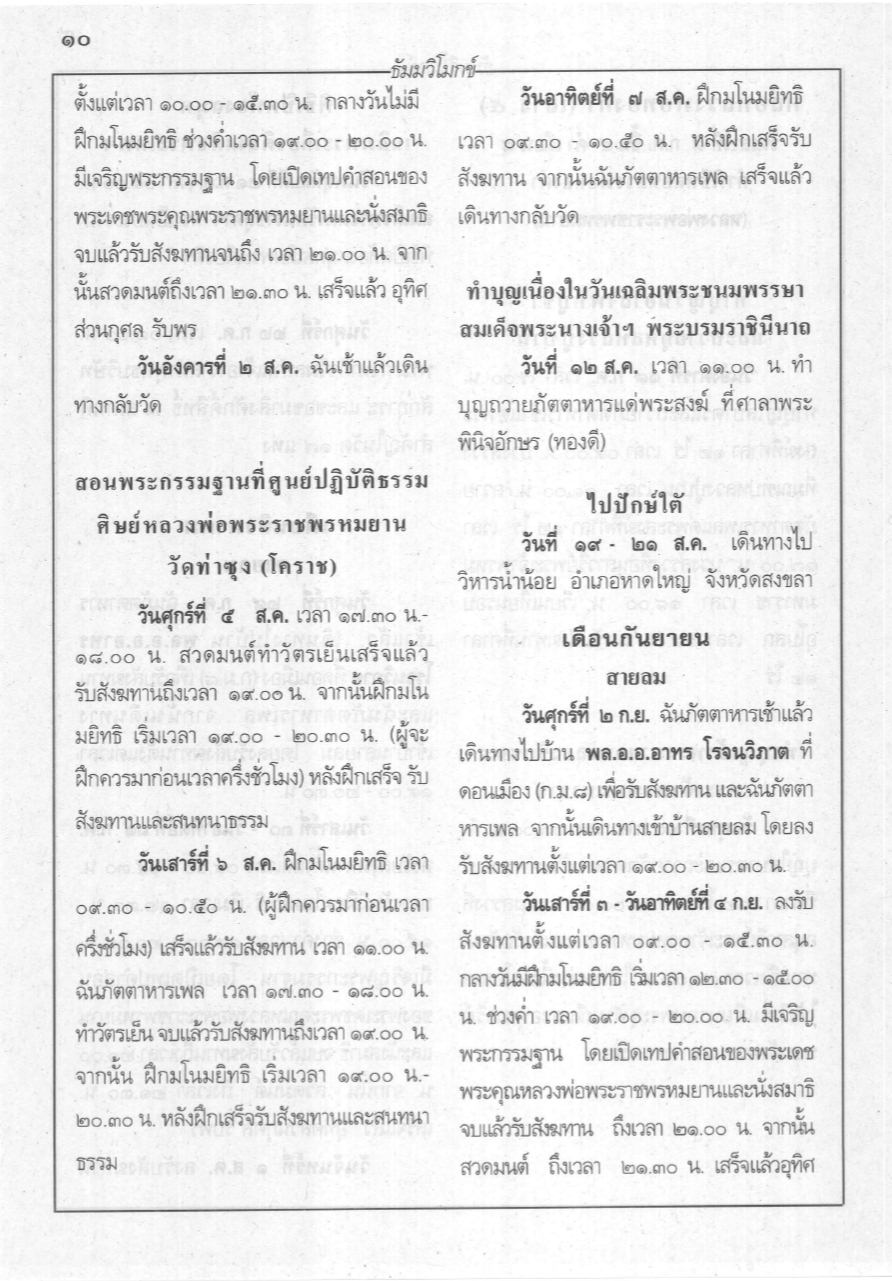 ๑๐
ธัมมวิโมกข์
ตั้งแต่เวลา ๑๐.๐๐ - ๑๕.๓๐ น. กลางวันไม่มี
ฝึกมโนมยิทธิ ช่วงค่ำเวลา ๑๙.๐๐ - ๒๐.๐๐ น.
มีเจริญพระกรรมฐาน โดยเปิดเทปคำสอนของ
พระเดชพระคุณพระราชพรหมยานและนั่งสมาธิ
จบแล้วรับสังฆทานจนถึง เวลา ๒๑.๐๐ น. จาก
นั้นสวดมนต์ถึงเวลา ๒๑.๓๐ น. เสร็จแล้ว อุทิศ
ส่วนกุศล รับพร
วันอังคารที่ ๒ ส.ค. ฉันเช้าแล้วเดิน
ทางกลับวัด
สอนพระกรรมฐานที่ศูนย์ปฏิบัติธรรม
ศิษย์หลวงพ่อพระราชพรหมยาน
วัดท่าซุง (โคราช)
วันศุกร์ที่ ๕ ส.ค. เวลา ๑๗.๓๐ น.-
๑๘.๐๐ น. สวดมนต์ทำวัตรเย็นเสร็จแล้ว
รับสังฆทานถึงเวลา ๑๙.๐๐ น. จากนั้นฝึกมโน
มยิทธิ เริ่มเวลา ๑๙.๐๐ - ๒๐.๓๐ น. (ผู้จะ
ฝึกควรมาก่อนเวลาครึ่งชั่วโมง) หลังฝึกเสร็จ รับ
สังฆทานและสนทนาธรรม
วันเสาร์ที่ ๖ ส.ค. ฝึกมโนมยิทธิ เวลา
๐๙.๓๐ - ๑๐.๕๐ น. (ผู้ฝึกควรมาก่อนเวลา
ครึ่งชั่วโมง) เสร็จแล้วรับสังฆทาน เวลา ๑๑.๐๐ น.
ฉันภัตตาหารเพล เวลา ๑๗.๓๐ - ๑๘.๐๐ น.
ทำวัตรเย็น จบแล้วรับสังฆทานถึงเวลา ๑๙.๐๐ น.
จากนั้น ฝึกมโนมยิทธิ เริ่มเวลา ๑๙.๐๐ น.-
๒๐.๓๐ น. หลังฝึกเสร็จรับสังฆทานและสนทนา
ธรรม
วันอาทิตย์ที่ ๗ ส.ค. ฝึกมโนมยิทธิ
เวลา ๐๙.๓๐ - ๑๐.๕๐ น. หลังฝึกเสร็จรับ
สังฆทาน จากนั้นฉันภัตตาหารเพล เสร็จแล้ว
เดินทางกลับวัด
ทำบุญเนื่องในวันเฉลิมพระชนมพรรษา
สมเด็จพระนางเจ้าฯ พระบรมราชินีนาถ
วันที่ ๑๒ ส.ค. เวลา ๑๑.๐๐ น. ทำ
บุญถวายภัตตาหารแด่พระสงฆ์ ที่ศาลาพระ
พินิจอักษร (ทองดี)
ไปปักษ์ใต้
วันที่ ๑๙ - ๒๑ ส.ค. เดินทางไป
วิหารน้ำน้อย อำเภอหาดใหญ่ จังหวัดสงขลา
เดือนกันยายน
สายลม
วันศุกร์ที่ ๒ ก.ย. ฉันภัตตาหารเช้าแล้ว
เดินทางไปบ้าน พล.อ.อ.อาทร โรจนวิภาต ที่
ดอนเมือง (ก.ม.๘) เพื่อรับสังฆทาน และฉันภัตตา
หารเพล จากนั้นเดินทางเข้าบ้านสายลม โดยลง
รับสังฆทานตั้งแต่เวลา ๑๙.๐๐ - ๒๐.๓๐ น.
วันเสาร์ที่ ๓ - วันอาทิตย์ที่ ๔ ก.ย. ลงรับ
สังฆทานตั้งแต่เวลา ๐๙.๐๐ - ๑๕.๓๐ น.
กลางวันมีฝึกมโนมยิทธิ เริ่มเวลา ๑๒.๓๐ - ๑๕.๐๐
น. ช่วงค่ำ เวลา ๑๙.๐๐ - ๒๐.๐๐ น. มีเจริญ
พระกรรมฐาน โดยเปิดเทปคำสอนของพระเดช
พระคุณหลวงพ่อพระราชพรหมยานและนั่งสมาธิ
จบแล้วรับสังฆทาน ถึงเวลา ๒๑.๐๐ น. จากนั้น
สวดมนต์ ถึงเวลา ๒๑.๓๐ น. เสร็จแล้วอุทิศ